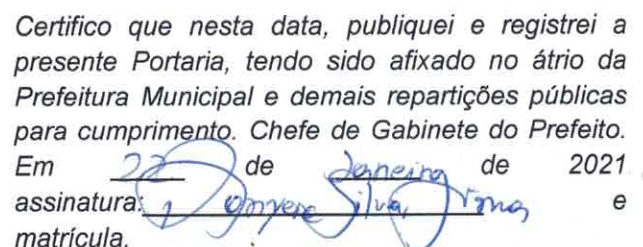 Certifico que nesta data, publiquei e registrei a
presente Portaria, tendo sido afixado no átrio da
Prefeitura Municipal e demais repartições públicas
para cumprimento. Chefe de Gabinete do Prefeito.
Em 22 de Janeiro de 2021
assinatura: Silva e
matrícula.